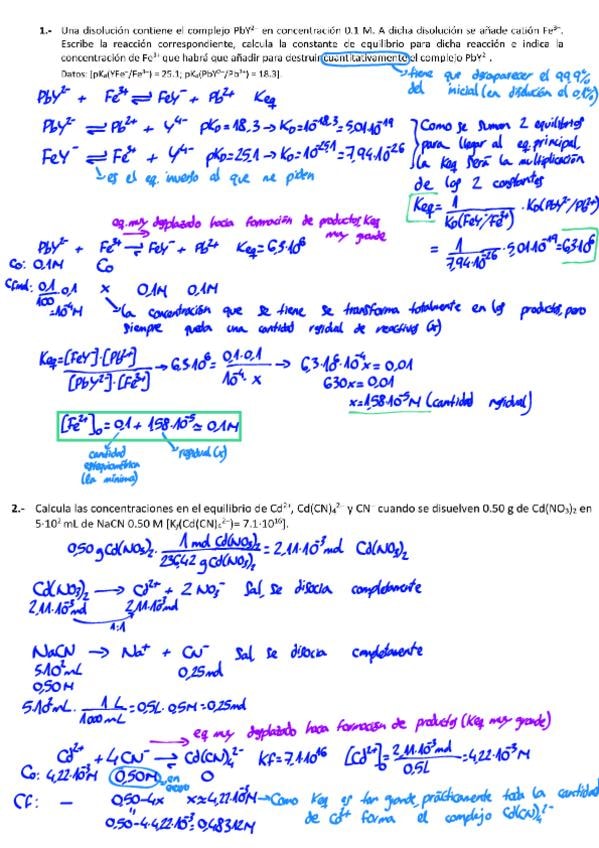 1.- Una disolución contiene el complejo PbY²⁻ en concentración 0.1 M. A dicha disolución se añade catión Fe³⁺.
Escribe la reacción correspondiente, calcula la constante de equilibrio para dicha reacción e indica la
concentración de Fe³⁺ que habrá que añadir para destruir cuantitativamente el complejo PbY²⁻.
Datos: [pKd(YFe⁻/Fe³⁺) = 25.1; pKd(PbY²⁻/Pb²⁺) = 18.3].
→ tiene que desaparecer el 99,9%
del inicial (en disolución el 0,1%)
PbY²⁻ + Fe³⁺ ⇌ FeY⁻ + Pb²⁺ Keq
PbY²⁻ ⇌ Pb²⁺ + Y⁴⁻ pKD=18,3 → KD=10⁻¹⁸'³=5,01·10⁻¹⁹
FeY⁻ ⇌ Fe³⁺ + Y⁴⁻ pKD=25,1 → KD=10⁻²⁵'¹=7,94·10⁻²⁶
↳ es el eq. inverso al que me piden
Como se suman 2 equilibrios
para llegar al eq. principal,
la Keq será la multiplicación
de los 2 constantes
Keq = 1/KD(FeY⁻/Fe³⁺) · KD(PbY²⁻/Pb²⁺)
= 1/7,94·10⁻²⁶ · 5,01·10⁻¹⁹ = 6,3·10⁶
eq. muy desplazado hacia formación de productos, Keq
muy grande
PbY²⁻ + Fe³⁺ ⇌ FeY⁻ + Pb²⁺ Keq = 6,3·10⁶
Co: 0,1M Co
Cfinal: 0,1/100 · 0,1 x 0,1M 0,1M
=10⁻⁴M
↳ la concentración que se tiene se transforma totalmente en los productos, pero
siempre queda una cantidad residual de reactivos (x)
Keq = [FeY⁻]·[Pb²⁺]/[PbY²⁻]·[Fe³⁺] → 6,3·10⁶ = 0,1·0,1/10⁻⁴·x → 6,3·10⁶·10⁻⁴x = 0,01
630x = 0,01
x = 1,58·10⁻⁵M (cantidad residual)
[Fe³⁺]₀ = 0,1 + 1,58·10⁻⁵ ≃ 0,1M
cantidad
estequiométrica
(la mínima)
residual (x)
2.- Calcula las concentraciones en el equilibrio de Cd²⁺, Cd(CN)₄²⁻ y CN⁻ cuando se disuelven 0.50 g de Cd(NO₃)₂ en
5·10² mL de NaCN 0.50 M [Kf(Cd(CN)₄²⁻)= 7.1·10¹⁶].
0,50 g Cd(NO₃)₂ · 1 mol Cd(NO₃)₂/236,42 g Cd(NO₃)₂ = 2,11·10⁻³ mol Cd(NO₃)₂
Cd(NO₃)₂ → Cd²⁺ + 2 NO₃⁻ Sal, se disocia completamente
2,11·10⁻³ mol 2,11·10⁻³ mol
1:1
NaCN → Na⁺ + CN⁻ Sal se disocia completamente
5·10² mL 0,25 mol
0,50 M
5·10² mL · 1 L/1000 mL = 0,5L · 0,5M = 0,25 mol
eq muy desplazado hacia formación de productos (Keq muy grande)
Cd²⁺ + 4 CN⁻ ⇌ Cd(CN)₄²⁻ Kf = 7,1·10¹⁶ [Cd²⁺]₀ = 2,11·10⁻³ mol/0,5L = 4,22·10⁻³M
Co: 4,22·10⁻³M 0,50M en exceso 0
Cf: - 0,50-4x x≃4,22·10⁻³M → Como Keq es tan grande, prácticamente toda la cantidad
de Cd²⁺ forma el complejo Cd(CN)₄²⁻
0,50-4·4,22·10⁻³ = 0,48312M